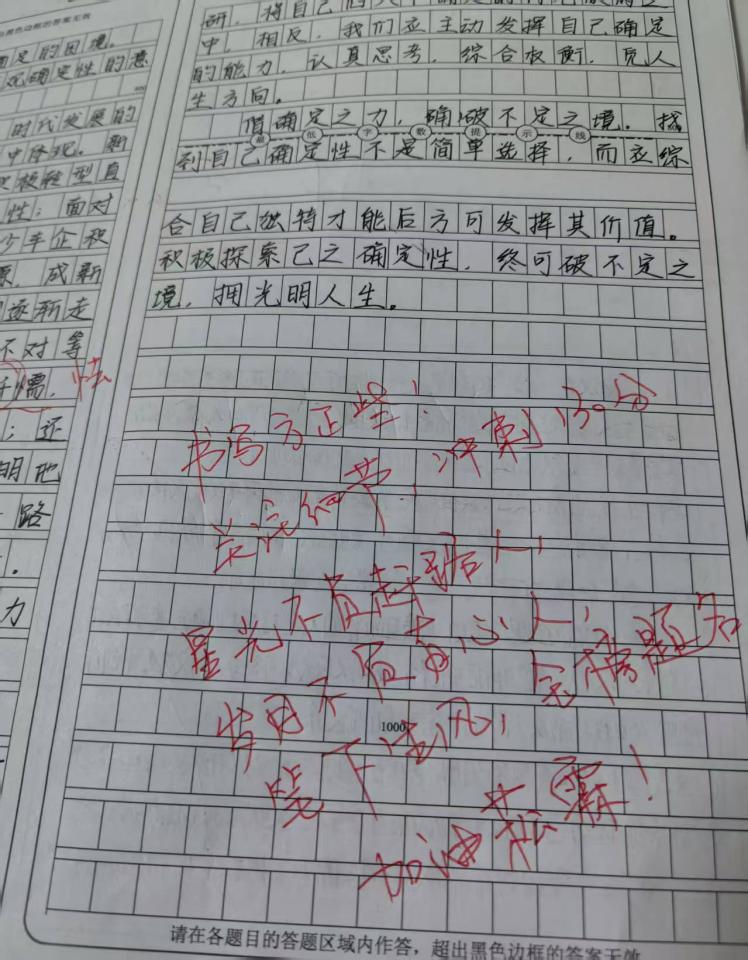 黑色边框的答案无效
确定的困境。
确定性的意
时代发展的
中体现。新
积极转型直
性；面对
少车企积
源，成新
逐渐走
不对等
懦，怯
；还
明地
路
。
力
研，将自己的
中，相反，我们应主动发挥自己确定
的能力，认真思考，综合权衡，觅人
生方向。
借确定之力，确破不定之境。找
最低字数提示线
到自己确定性不是简单选择，而应综
合自己独特才能后方可发挥其价值。
积极探索己之确定性，终可破不定之
境，拥光明人生。
书写方正些！
关注细节，冲刺130分
星光不负赶路人，
岁月不负有心人，金榜题名
笔下生风，
1000
加油 学霸！
请在各题目的答题区域内作答，超出黑色边框的答案无效